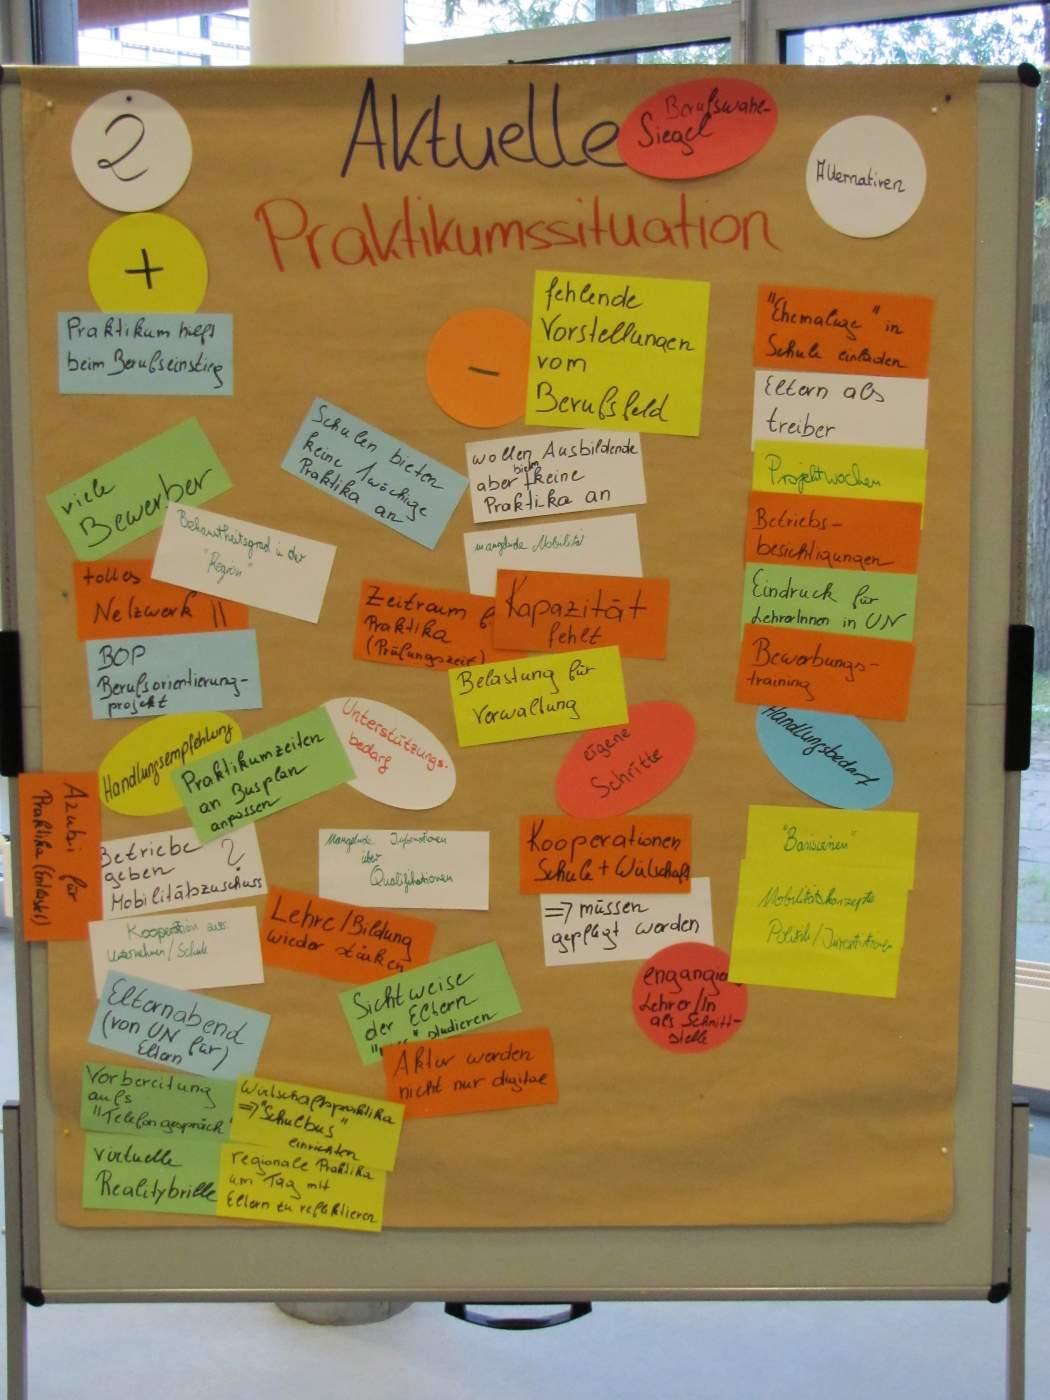 2
Aktuelle
Berufswahl-
Siegel
Praktikumssituation
Alternativen
+
Praktikum hilft
beim Berufseinstieg
viele
Bewerber
Bekanntheitsgrad in der
"Region"
tolles
Netzwerk !!
BOP
Berufsorientierung-
projekt
-
fehlende
Vorstellungen
vom
Berufsfeld
Schulen bieten
keine 1wöchige
Praktika an
wollen Ausbildende
bieten
aber keine
Praktika an
mangelnde Mobilität
Zeitraum f.
Praktika
(Prüfungszeit)
Kapazität
fehlt
Belastung für
Verwaltung
"Ehemalige" in
Schule einladen
Eltern als
treiber
Projektwochen
Betriebs-
besichtigungen
Eindruck für
LehrerInnen in UN
Bewerbungs-
training
Handlungsempfehlung
Praktikumzeiten
an Busplan
anpassen
Azubi für
Praktika
Betriebe ?
geben
Mobilitätszuschuss
Kooperation zw.
Unternehmen/Schule
Elternabend
(von UN für)
Eltern
Vorbereitung
aufs
"Telefongespräch"
virtuelle
Realitybrille
Wirtschaftspraktika
=> "Schulbus"
einrichten
regionale Praktika
um Tag mit
Eltern zu reflektieren
Unterstützungs-
bedarf
Mangelnde Informationen
über
Qualifikationen
Lehre/Bildung
wieder stärken
Sichtweise
der Eltern
studieren
Aktur werden
nicht nur digital
eigene
Schritte
Kooperationen
Schule + Wirtschaft
=> müssen
gepflegt werden
engangie
Lehrer/in
als Schnitt-
stelle
Handlungsbedarf
Mobilitätskonzepte
Politik/